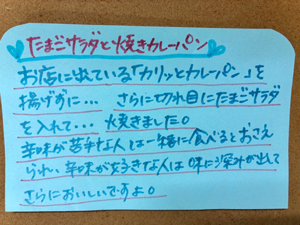 たまごサラダと焼きカレーパン
お店に出ている「カリッとカレーパン」を
揚げずに… さらに切れ目にたまごサラダ
を入れて… 焼きました。
辛味が苦手な人は一緒に食べるとおさえ
られ、辛味が好きな人は味に深みが出て
さらにおいしいですよ。